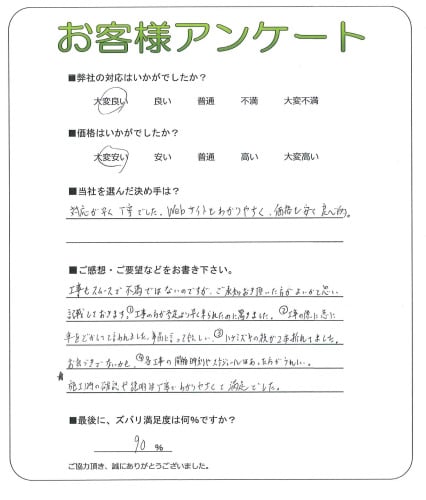 お客様アンケート
■弊社の対応はいかがでしたか？
大変良い 良い 普通 不満 大変不満
■価格はいかがでしたか？
大変安い 安い 普通 高い 大変高い
■当社を選んだ決め手は？
対応が早く丁寧でした。Webサイトもわかりやすく、価格も安く良心的。
■ご感想・ご要望などをお書き下さい。
工事もスムーズで不満ではないのですが、ご承知おき頂いた方がよいかと思い
記載しておきます。①工事の方が予定より早く来られたのに驚きました。②工事の際に急に
車をどかしてと言われました。事前に言ってほしい。③ハナミズキの枝が2本折れてました。
④各工事の開始時刻やスケジュールはあった方がうれしい。
施工内の確認や説明は丁寧でわかりやすくて満足でした。
■最後に、ズバリ満足度は何%ですか？
90 %
ご協力頂き、誠にありがとうございました。